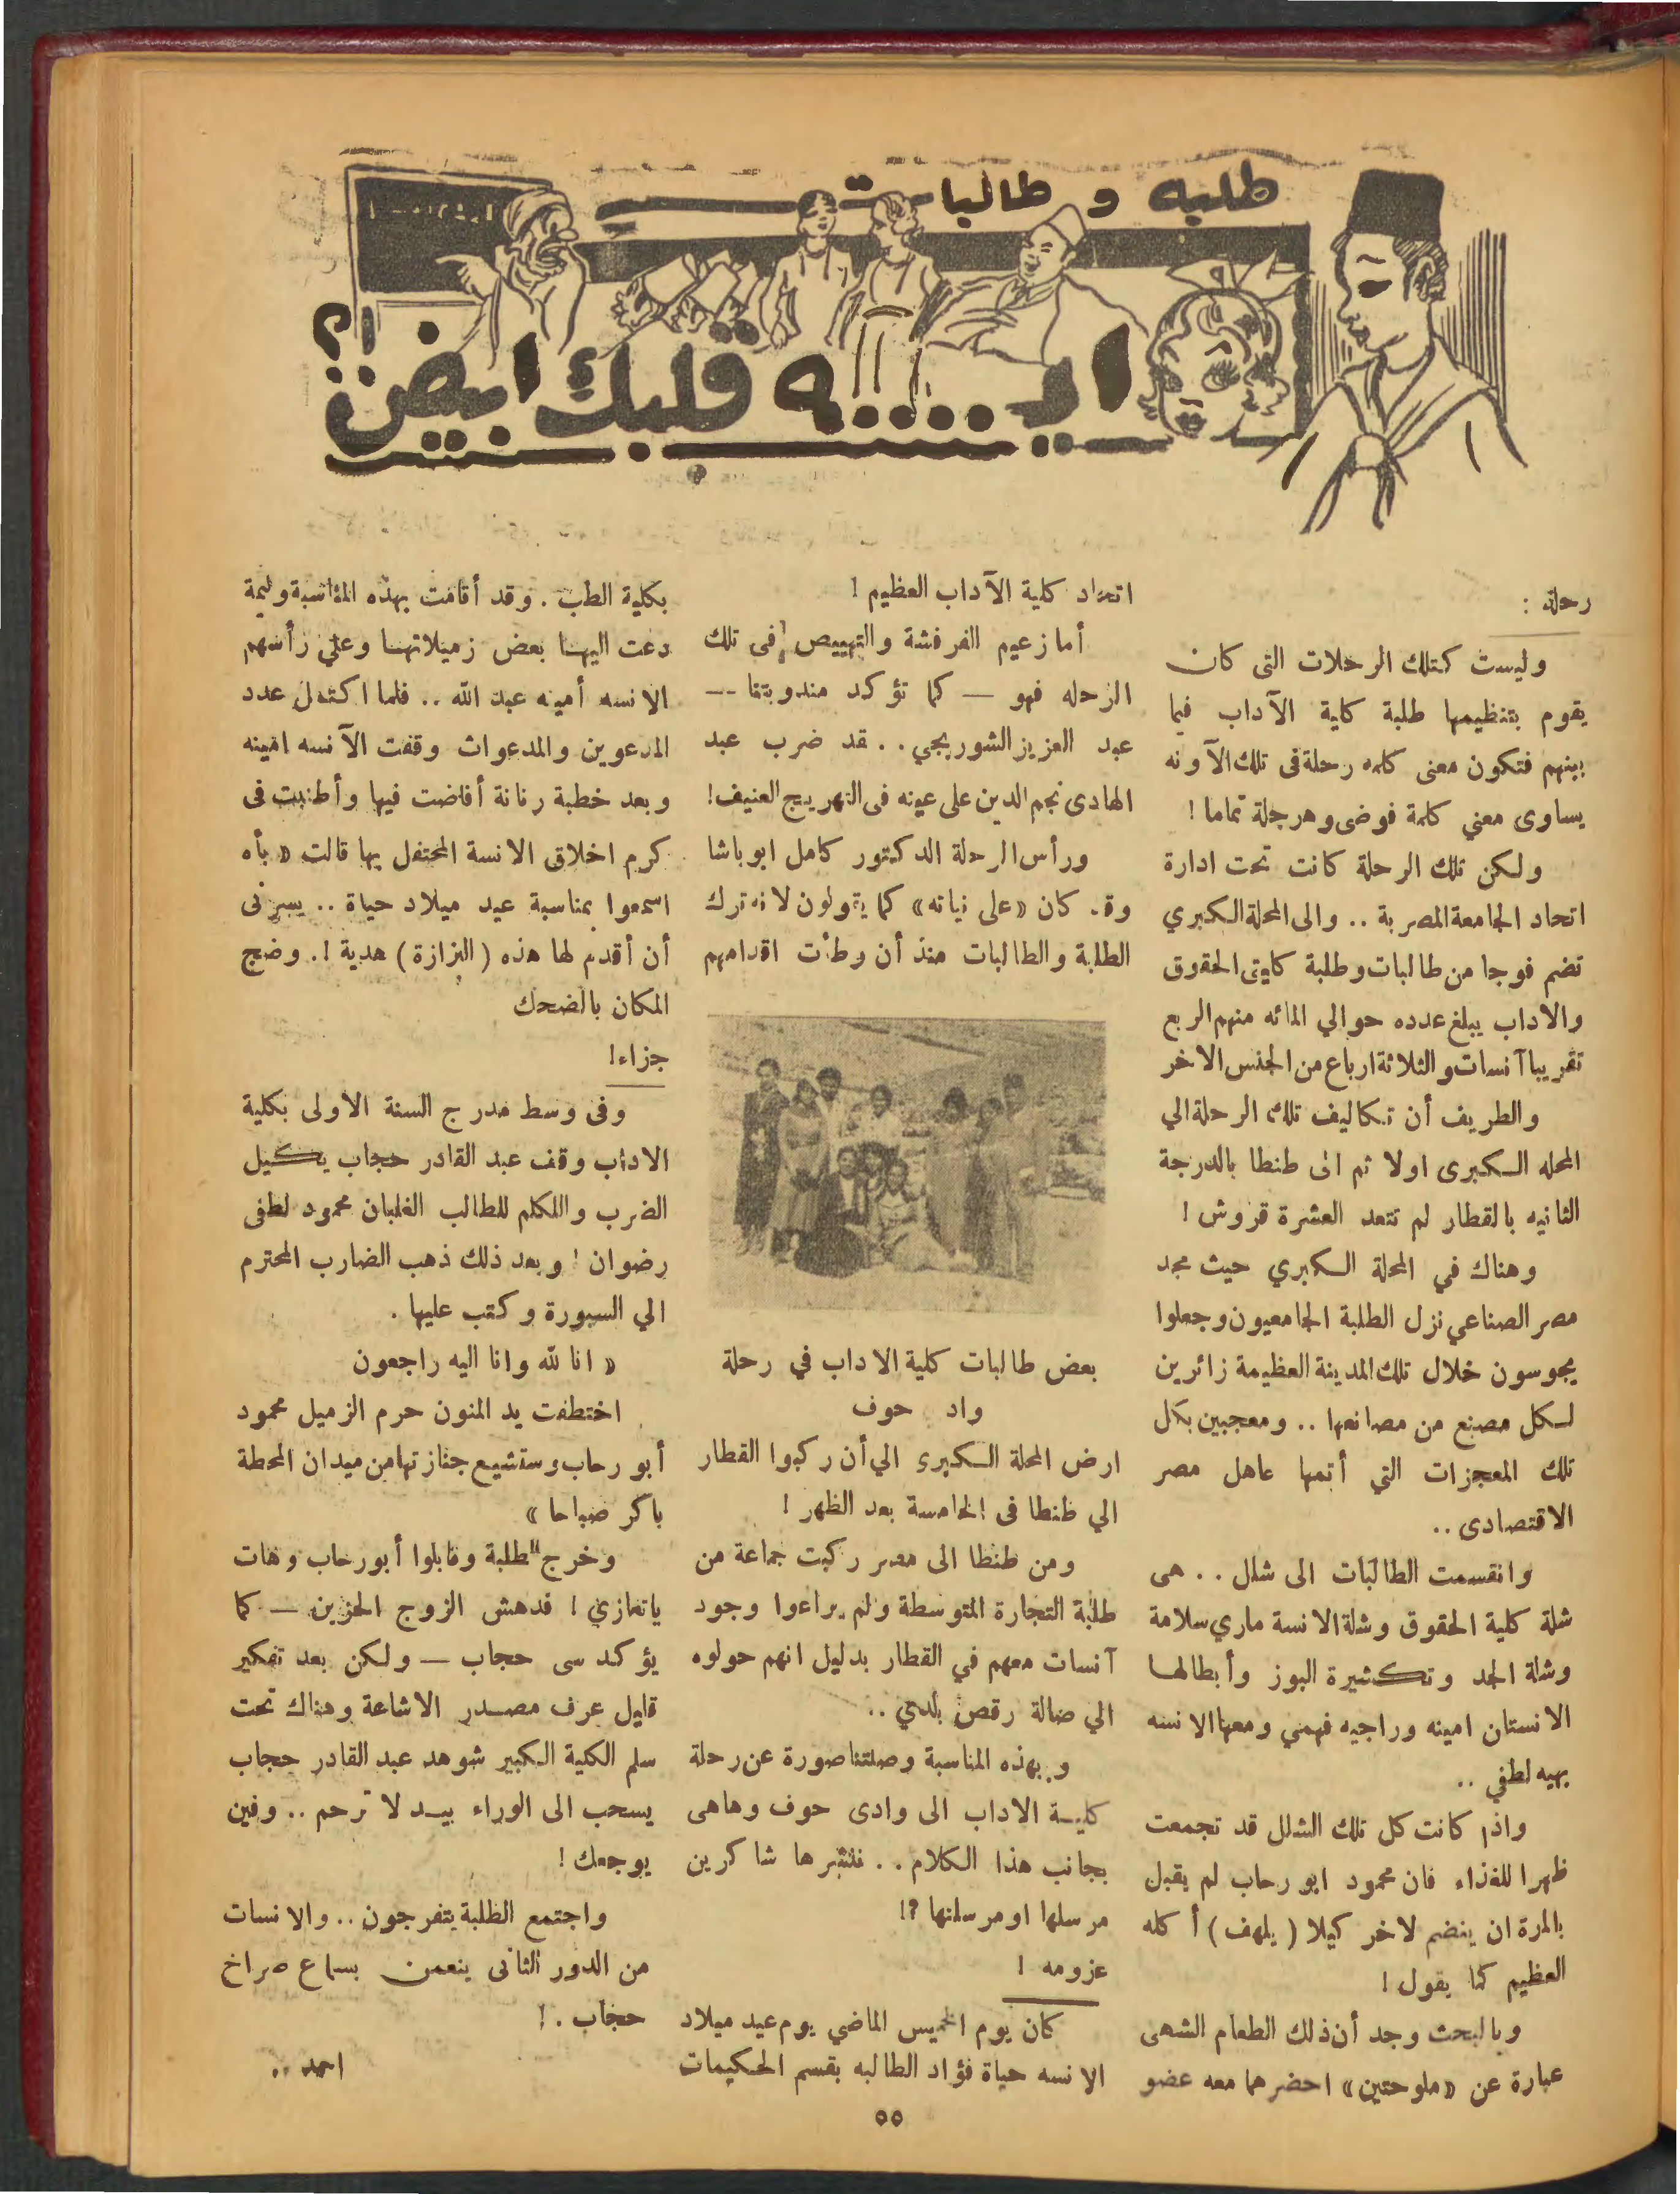 طلبه و طالبات
ايـ.....ـه قلبك ابيض !؟
رحلة :
وليست كتلك الرحلات التى كان
يقوم بتنظيمها طلبة كلية الآداب فيما
بينهم فتكون معنى كلمه رحلة فى تلك الآونه
يساوى معني كلمة فوضى وهرجلة تماما !
ولكن تلك الرحلة كانت تحت ادارة
اتحاد الجامعة المصرية .. والى المحلة الكبري
تضم فوجا من طالبات وطلبة كليتى الحقوق
والاداب يبلغ عدده حوالي المائه منهم الربع
تقريبا آنسات والثلاثة ارباع من الجنس الاخر
والطريف أن تكاليف تلك الرحلة الي
المحله الكبرى اولا ثم الى طنطا بالدرجة
الثانيه بالقطار لم تتعد العشرة قروش !
وهناك في المحلة الكبري حيث مجد
مصر الصناعي نزل الطلبة الجامعيون وجعلوا
يجوسون خلال تلك المدينة العظيمة زائرين
لكل مصنع من مصانعها .. ومعجبين بكل
تلك المعجزات التي أتمها عاهل مصر
الاقتصادى ..
وانقسمت الطالبات الى شلل .. هى
شلة كلية الحقوق وشلة الانسة ماري سلامة
وشلة الجد وتكشيرة البوز وأبطالها
الانستان امينه وراجيه فهمي ومعها الانسه
بهيه لطفي ..
واذا كانت كل تلك الشلل قد تجمعت
ظهرا للغذاء فان محمود ابو رحاب لم يقبل
بالمرة ان ينضم لاخر كيلا ( يلهف ) أكله
العظيم كما يقول !
وبالبحث وجد أن ذلك الطعام الشهى
عبارة عن «ملوحتين» احضرهما معه عضو
اتحاد كلية الآداب العظيم !
أما زعيم الفرفشة والتهييص فى تلك
الرحله فهو — كما تؤكد مندوبتنا --
عبد العزيز الشوربجي .. قد ضرب عبد
الهادى نجم الدين على عينه فى التهريج العنيف !
ورأس الرحلة الدكتور كامل ابو باشا
وقد كان «على نياته» كما يقولون لانه ترك
الطلبة والطالبات منذ أن وطأت اقدامهم
بعض طالبات كلية الاداب في رحلة
واد حوف
ارض المحلة الكبرى الي أن ركبوا القطار
الي طنطا فى الخامسة بعد الظهر !
ومن طنطا الى مصر ركبت جماعة من
طلبة التجارة المتوسطة ولم يراعوا وجود
آنسات معهم في القطار بدليل انهم حولوه
الي صالة رقص بلدي ..
وبهذه المناسبة وصلتنا صورة عن رحلة
كلية الاداب الى وادى حوف وهاهى
بجانب هذا الكلام .. ننشرها شاكرين
مرسلها او مرسلتها ؟!
عزومه !
كان يوم الخميس الماضي يوم عيد ميلاد
الانسه حياة فؤاد الطالبه بقسم الحكيمات
بكلية الطب . وقد أقامت بهذه المناسبة وليمة
دعت اليها بعض زميلاتها وعلى رأسهم
الانسه أمينه عبد الله .. فلما اكتمل عدد
المدعوين والمدعوات وقفت الآنسه امينه
وبعد خطبة رنانة أفاضت فيها وأطنبت فى
كرم اخلاق الانسة المحتفل بها قالت « بأه
اسمعوا بمناسبة عيد ميلاد حياة .. يسرنى
أن أقدم لها هذه ( البزازة ) هدية ! . وضج
المكان بالضحك
جزاء !
وفى وسط مدرج السنة الاولى بكلية
الاداب وقف عبد القادر حجاب يكيل
الضرب واللكلم للطالب الغلبان محمود لطفى
رضوان ! وبعد ذلك ذهب الضارب المحترم
الي السبورة وكتب عليها .
« انا لله وانا اليه راجعون
اختطفت يد المنون حرم الزميل محمود
أبو رحاب وستشيع جنازتها من ميدان المحطة
باكر صباحا »
وخرج الطلبة وقابلوا أبو رحاب وهات
ياتعازي ! فدهش الزوج الحزين — كما
يؤكد سى حجاب — ولكن بعد تفكير
قليل عرف مصدر الاشاعة وهناك تحت
سلم الكلية الكبير شوهد عبد القادر حجاب
يسحب الى الوراء بيد لا ترحم .. وفين
يوجعك !
واجتمع الطلبة يتفرجون .. والانسات
من الدور الثانى ينعمن بسماع صراخ
حجاب . !
احمد ..
٥٥